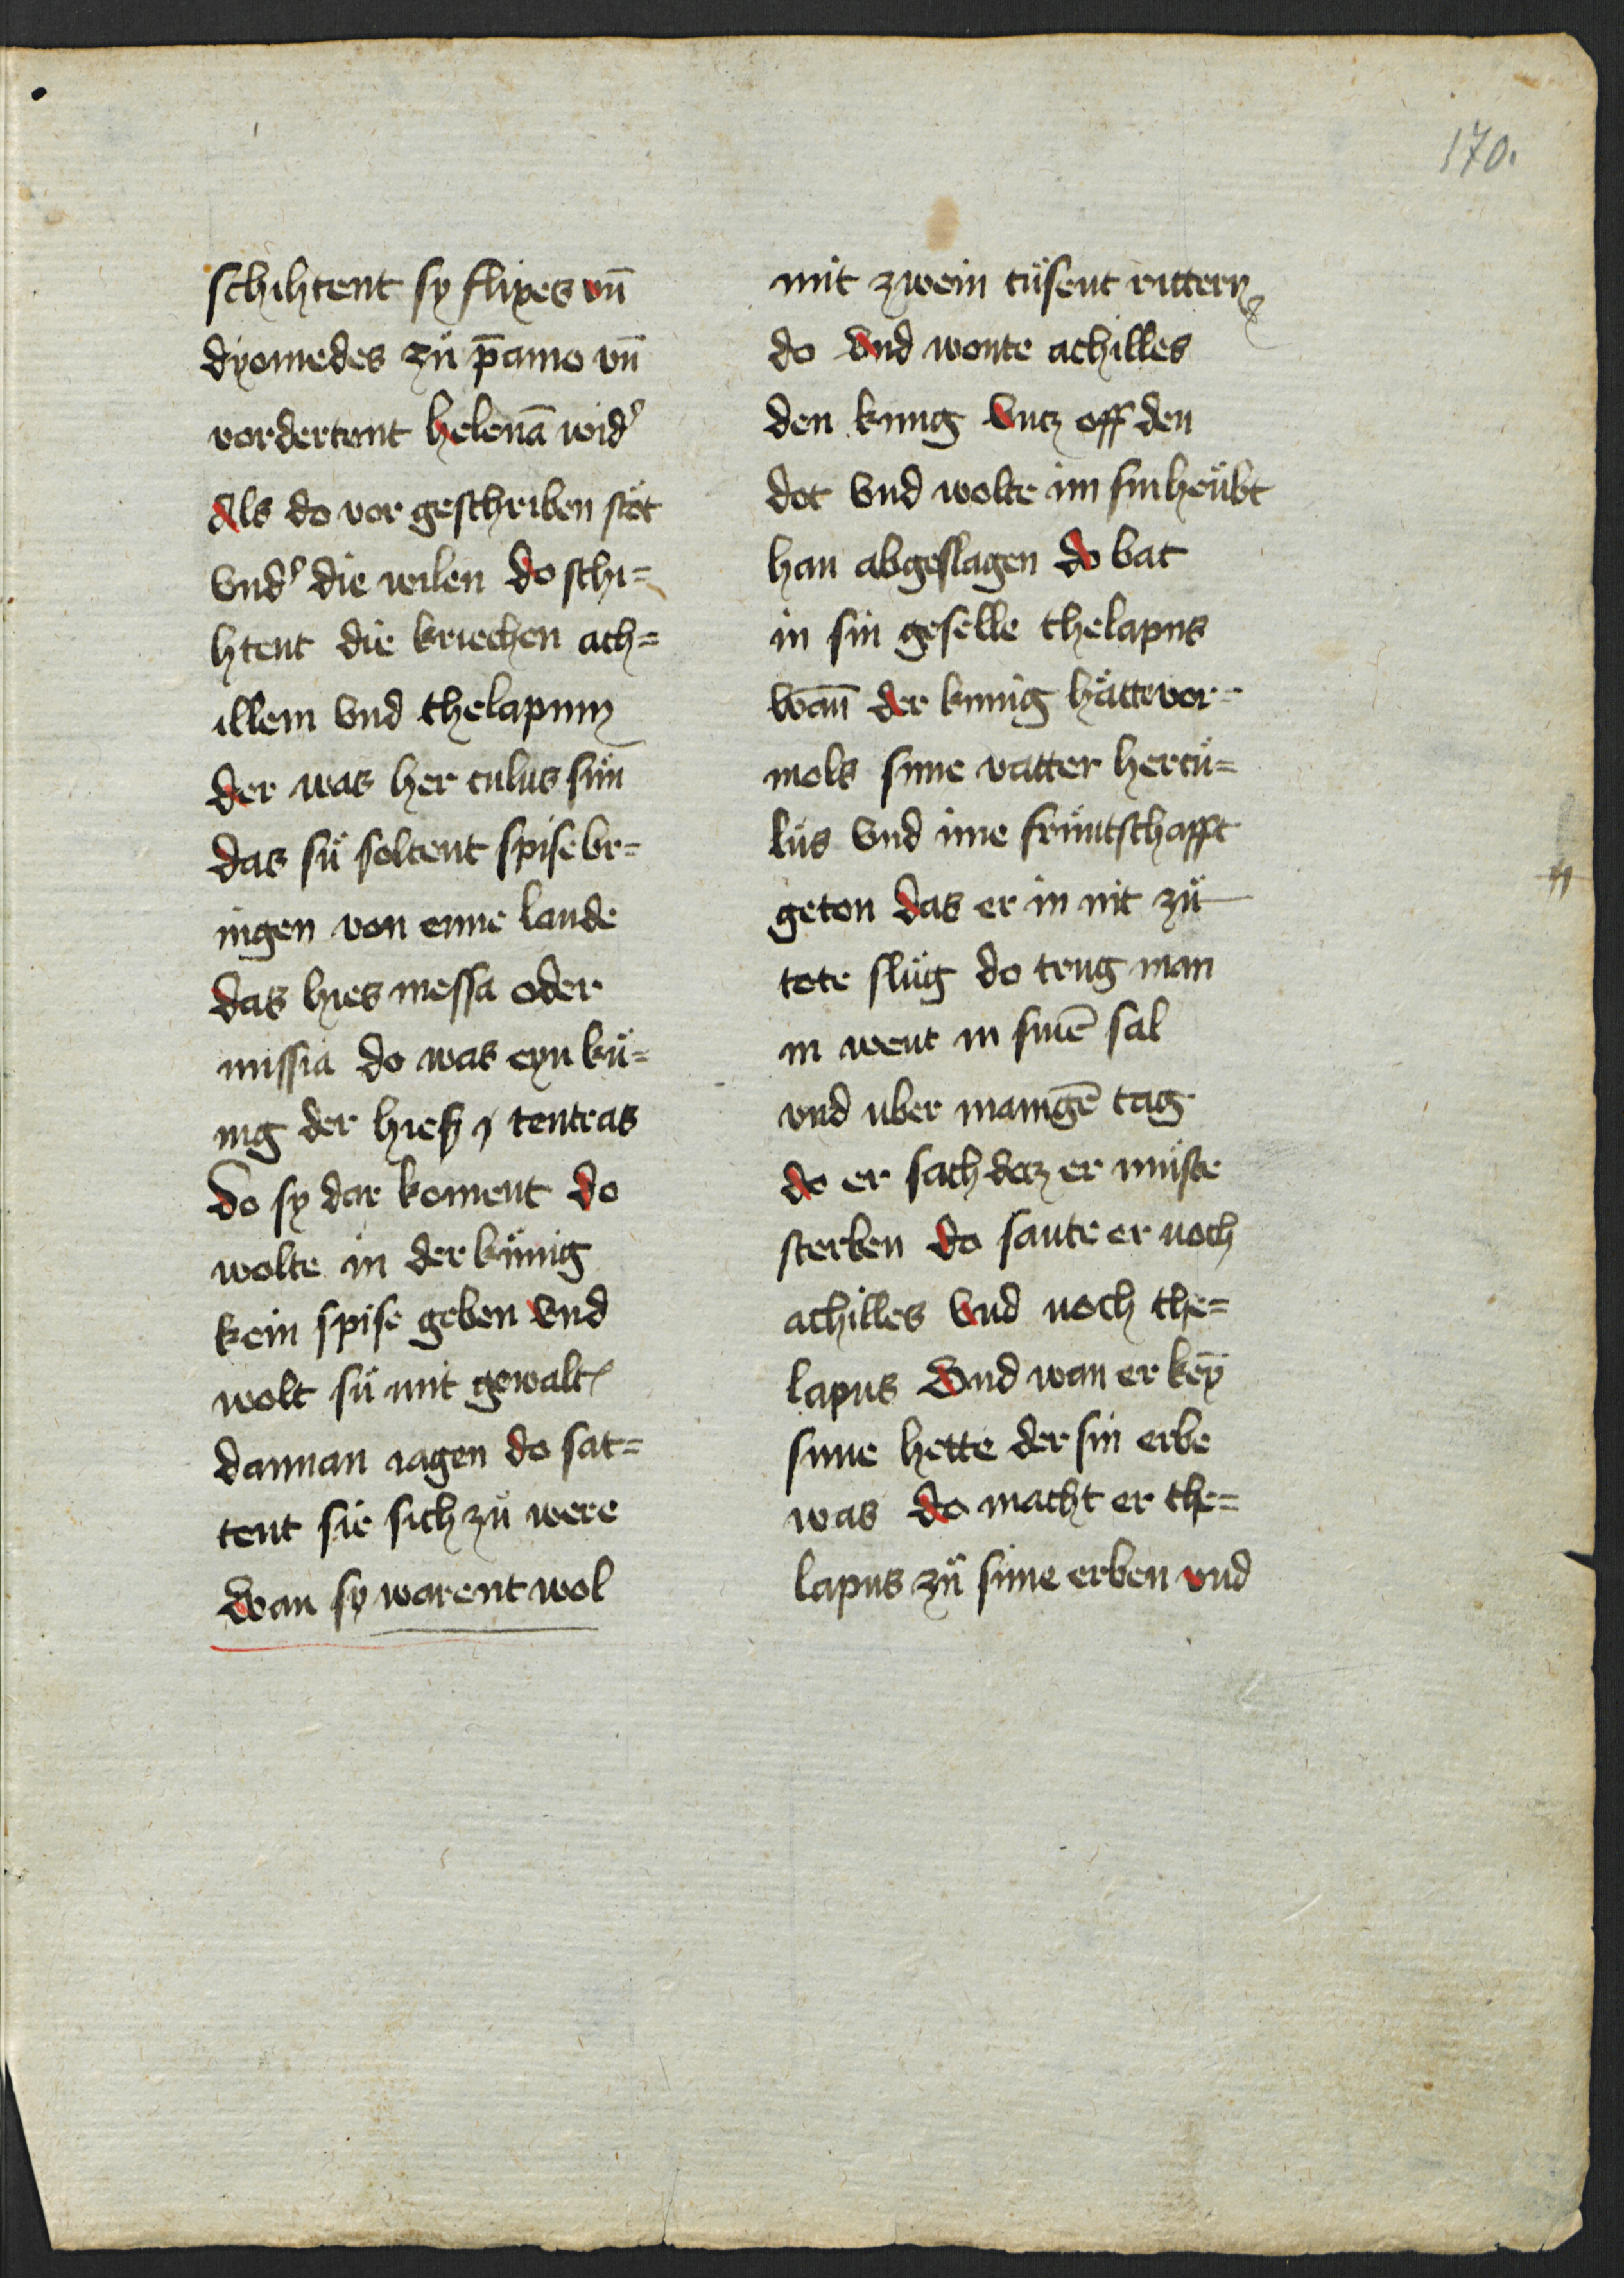 170.
schihtent sy flixes vn̄
dyomedes zü p̄amo vn̄
vordertent helenā wid͛
Als do vor geschriben stöt
Vnd͛ die wilen do schi=
htent die kriechen ach=
illem Vnd thelapum
der was her culus sün
das sü soltent spise br=
ingen von eime lande
das hies messa oder
missia do was eyn kü=
nig der hiesz tentras
Do sy dar koment do
wolte in der künig
kein spise geben Vnd
wolt sü mit gewalt
dannan iagen do sat=
tent sie sich zü were
Wan sy warent wol
mit zwein tüsent rittern
do Vnd wonte achilles
den kunig Vntz off den
dot Vnd wolte im sin heübt
han abgeslagen do bat
in sin geselle thelapus
Wan̄ der kunig hätte vor=
mols sime vatter hercü=
lüs Vnd ime früntschafft
geton das er in nit zü
tote slüg do trug man
in wunt in sinē sal
vnd uber manigē tag
do er sach daz er müste
sterben do sante er noch
achilles Vnd noch the=
lapus Vnd wan er key̅
sune hette der sin erbe
was do macht er the=
lapus zü sime erben vnd